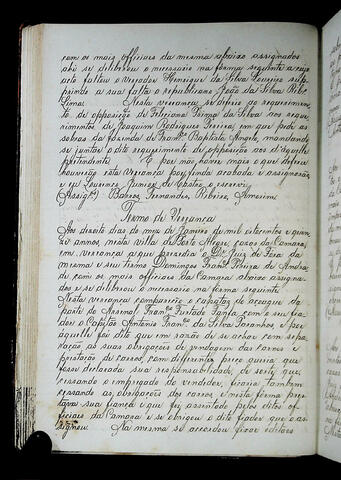 com os mais officiaes da mesma abaixo assignados
ahi se deliberou o necessario na forma seguinte a cujo
acto faltou o vereador Henrique da Silva Loureiro sup-
prindo a sua falta o republicano João da Silva Ribº
Lima. Nesta vereança se defere ao requerimen-
to de opposição de Feliciana Prima da Silva nos reque-
rimentos de Joaquim Rodrigues Pereira em que pede as
sobras da fazenda de Franco Baptista Anges, mandando
se juntar o dito requerimento de opposição aos d'aquelle
pretendente. E por não haver mais o que deferir
houverão esta vereança por finda acabada e assignarão,
e eu Lourenço Junior de Castro o escrevi.
Assigos) Barros, Fernandes, Ribeiro, Amorim.
Termo de Vereança
Aos direito dias do mez de Janeiro de mil oitocentos e quin-
ze annos, nesta villa de Porto Alegre, casas da Camara,
em vereança a que presidia o Dr. Juiz de Fora da
mesma e seu Termo Domingos Franco Pereira de Andra-
de com os mais officiaes da Camara abaixo assigna-
dos e se deliberou o necessario na forma seguinte
Nesta vereança compareceo o capataz do açougue da
parte do Arsenal Franco Furtado Fanfa com o seu fia-
dor o Capitão Antonio Franco da Silva Paranhos, e por
aquelle foi dito que em razão de se achar com sepa-
ração as suas obrigações de vendagem das carnes e
prestação de carros, com differentes preço queria que
fosse declarada sua responsabilidade, de sorte que,
cessando o empregado de vendedor, ficaria tambem
cessando as obrigações dos carros, e nesta forma pres-
tava sua fiança e que foi assentado pelos ditos of-
ficiaes da Camara e se obrigou o dito fiador que o as-
signou. Na mesma se accordou fixar editaes